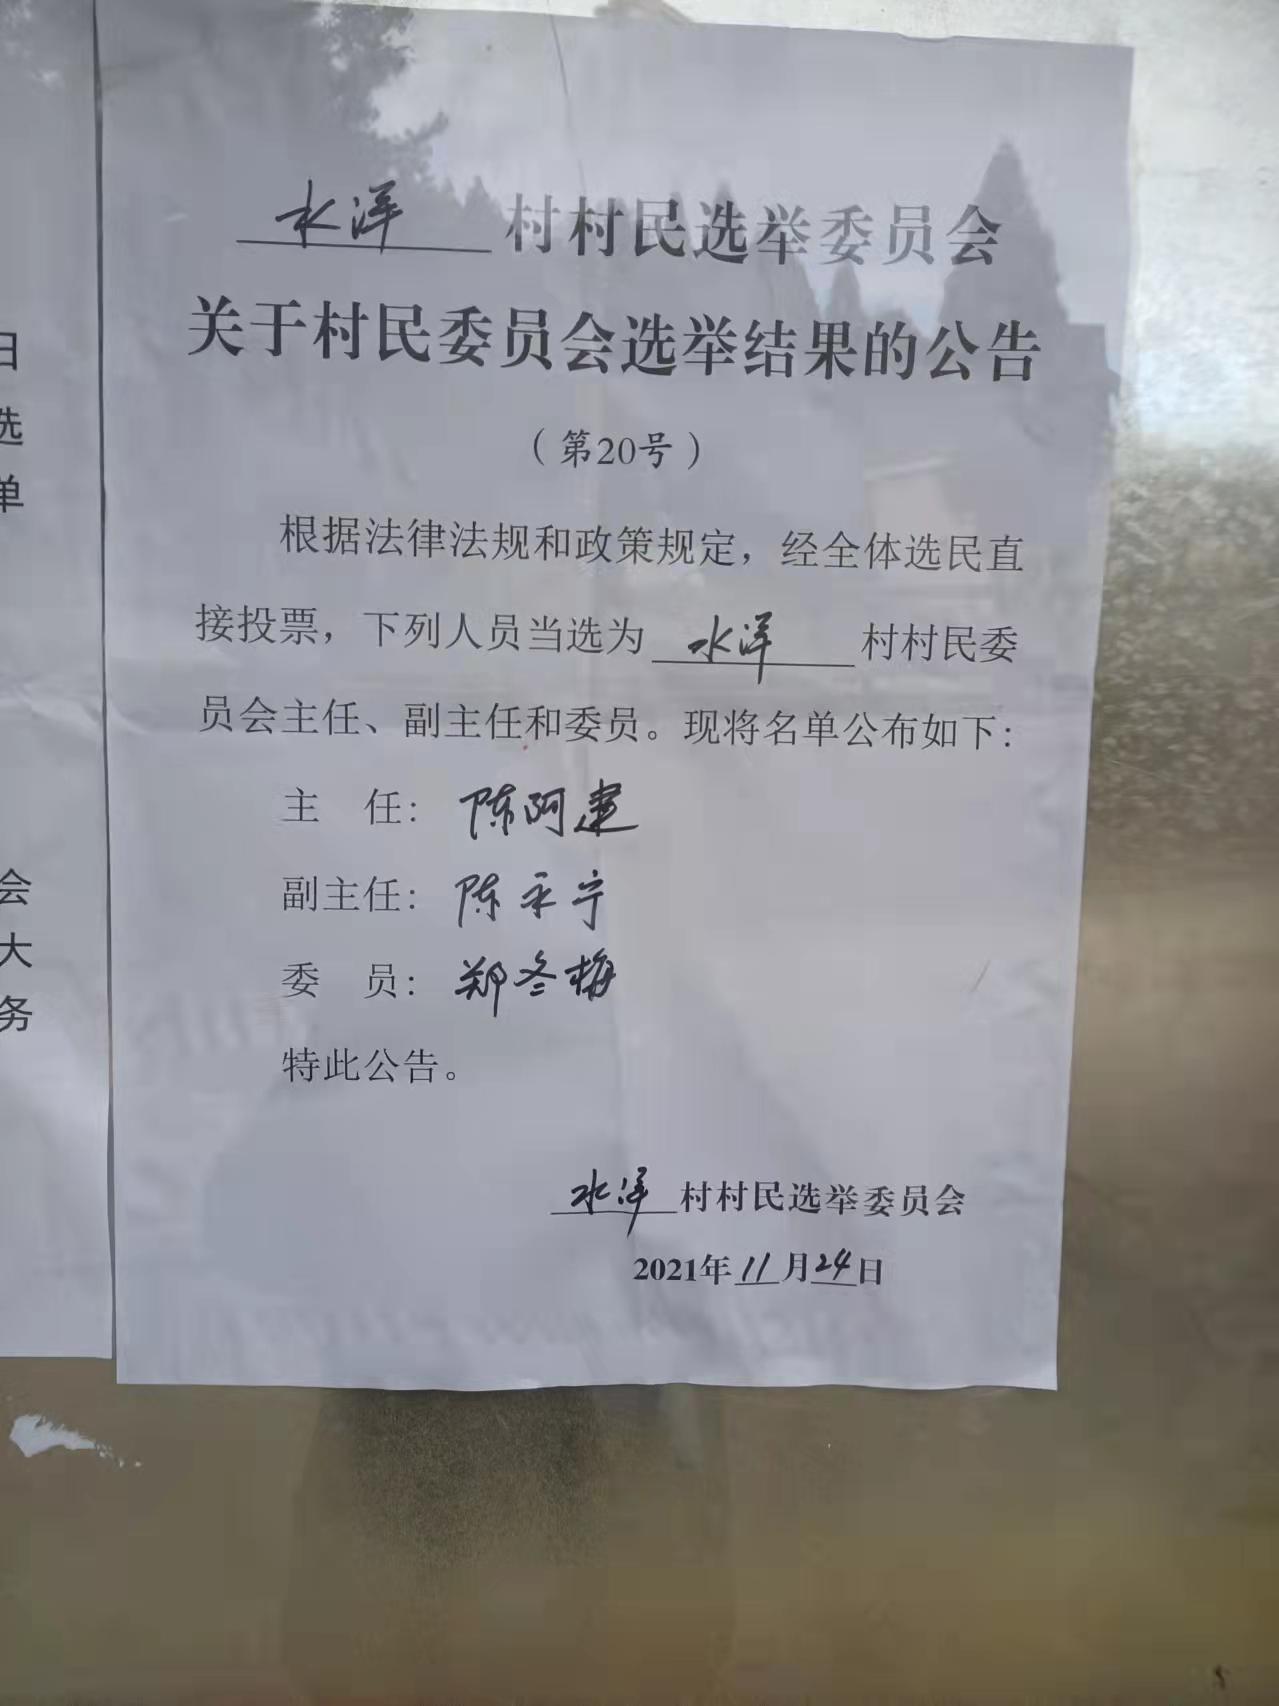 水洋村村民选举委员会
关于村民委员会选举结果的公告
（第20号）
根据法律法规和政策规定，经全体选民直
接投票，下列人员当选为水洋村村民委
员会主任、副主任和委员。现将名单公布如下：
主 任：陈阿建
副主任：陈永宁
委 员：郑冬梅
特此公告。
水洋村村民选举委员会
2021年11月24日
日
选
单
会
大
务